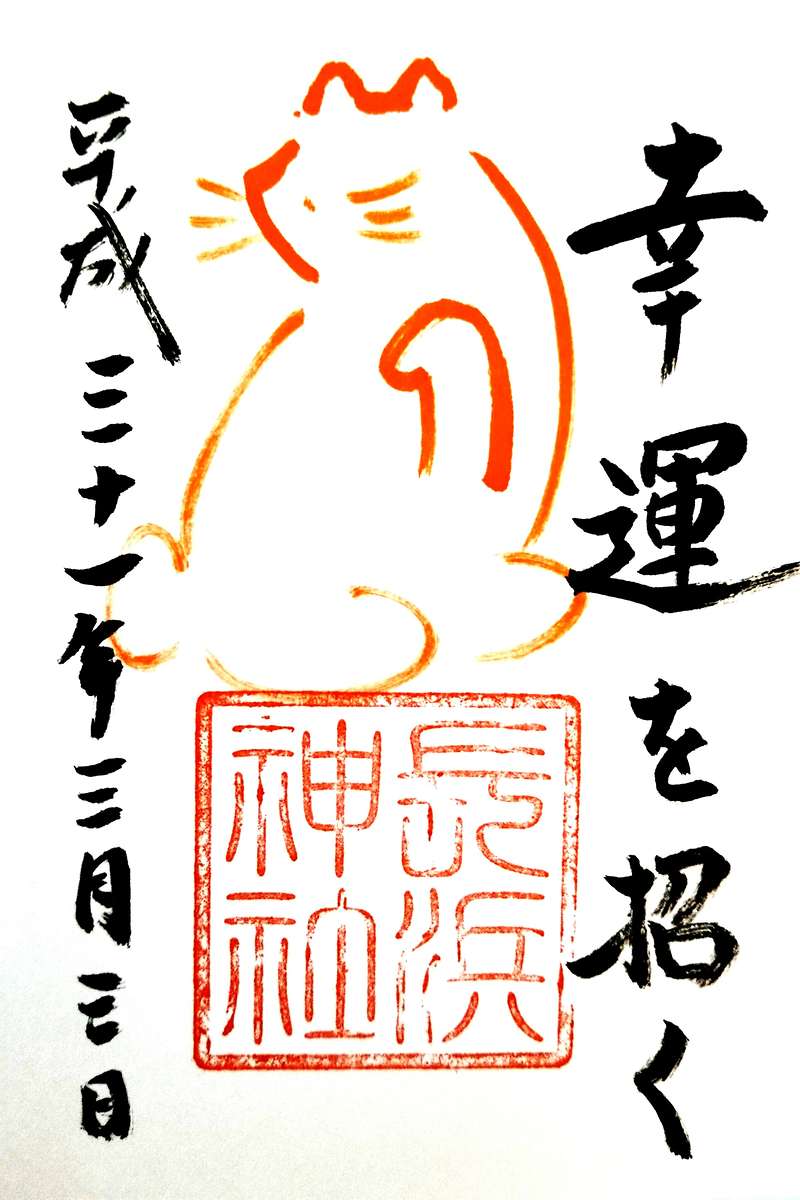 幸運を招く
長浜
神社
平成三十一年三月三日